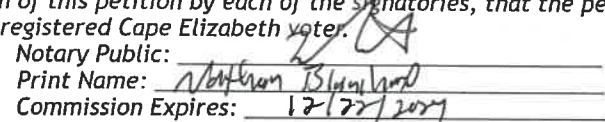 n of this petition by each of the signatories, that the pe
registered Cape Elizabeth voter.
Notary Public:
Print Name: Nathan
Commission Expires: 12/22/2029